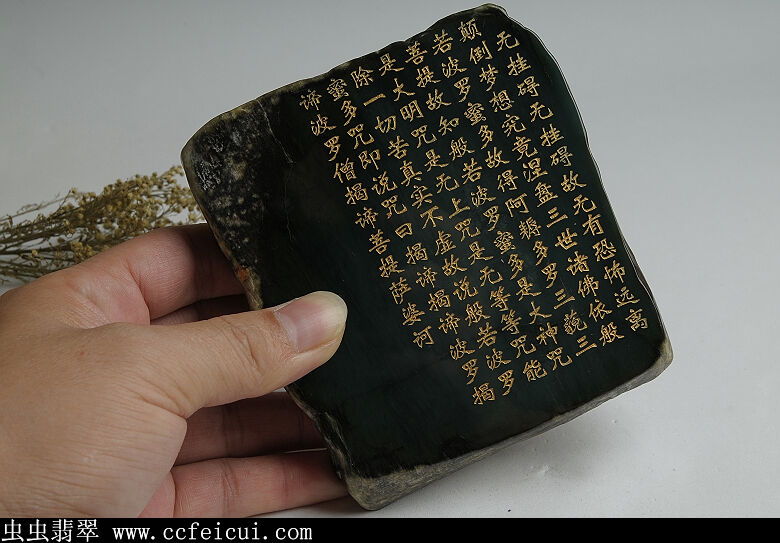 无挂碍无挂碍故无有恐怖远离
颠倒梦想究竟涅盘三世诸佛依般
若波罗蜜多故得阿耨多罗三藐三
菩提故知般若波罗蜜多是大神咒
是大明咒是无上咒是无等等咒能
除一切苦真实不虚故说般若波罗
蜜多咒即说咒曰揭谛揭谛波罗揭
谛波罗僧揭谛菩提萨婆诃
虫虫翡翠 www.ccfeicui.com